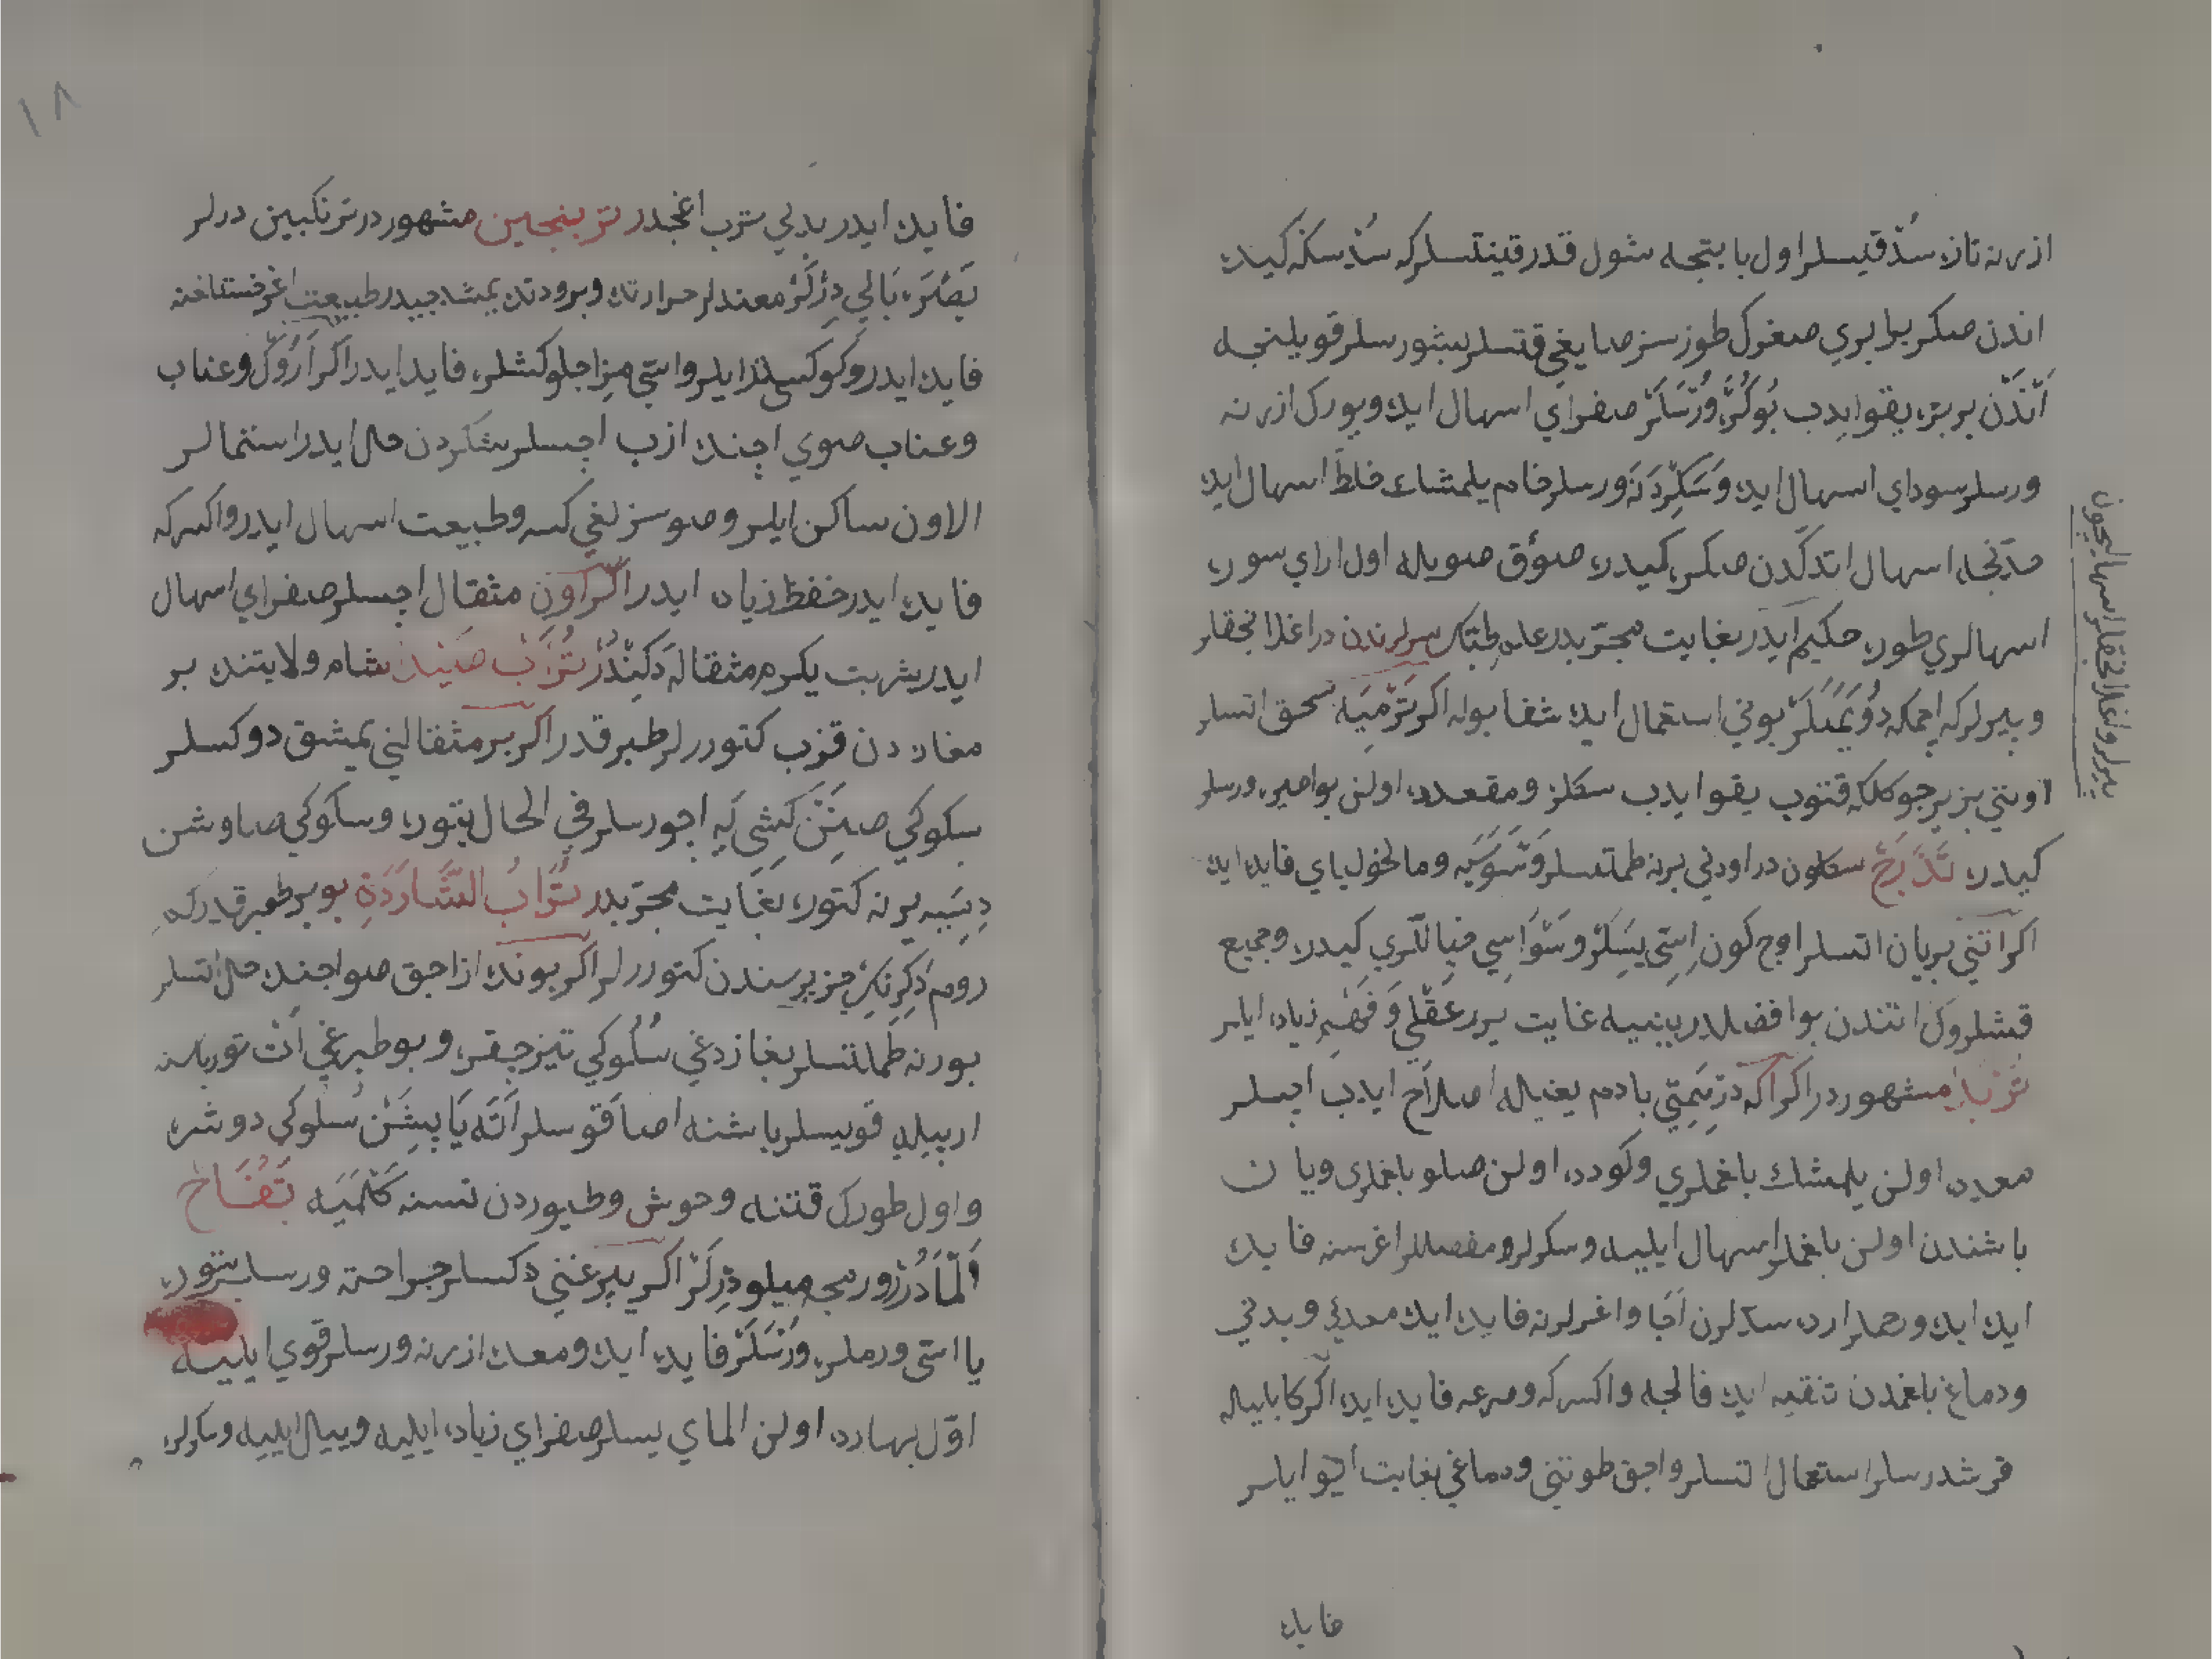 ازرنه تازه سُدْ قیسلر اول بابتجه شول قدر قینتسلر که سُدْ سکه کیده
اندن صکره برابری صغرل طوز سز صایغی قتسلر بشورسلر قویلنجه
اَنْدَن بر بزه یقو ایدب بُوکُرَه وُرْسَلَرْ صفرای اسهال ایده و یورک ازرنه
ورسلر سودای اسهال ایده وَسَکِرْدَنَه ورسلر خام یلمشاء خلط اسهال ایده
مدتجه اسهال اتدکدن صکره کیدره صوؤق صویله اول ارای سوره
اسهالری طوره حکیم ایدر بغایت مجربدر علم طبک سرلرندن در اغلانجقلر
و پیرلر که اچمکه دُویَمَیَلَرْ بونی استعمال ایده شفا بوله اکر تَرْمِیَه سحق اتسلر
اونی بزیر جوکلکه قتوب یقو ایدب سکلز و مقعدده اولن بواصیره ورسلر
کیدره تَدَرج سکلون در اودنی برنه طملتسلر وَسْوَسَیه و مالخولیای فایده ایده
اکر اتنی بریان اتسلر اوج کون اِسّی یِسَلَرْ وسْوَاسِی خیاللری کیدره وجمیع
قشلروک اتندن بو افضلدر ینیه غایت یرر عَقْلِی وَ فَهْمِی زیاده ایلر
تُرْبد مشهور در اکر اکه دَرْتَمِتِّی بادم یغیله اصلاح ایدب اچسلر
معدده اولن یلمشک بلغملری و کودده اولن صلو بلغملری و یان
باشندن اولن بلغملر اسهال ایلیه و سکرلر و مفصللر اغرسنه فایده
ایده ایده و رحملرده سدلرن اَجَا و اغرلرنه فایده ایده معدیی و بدنی
ودماغ بلغمدن تنقیه ایده فالجه و اکسرکه و صرعه فایده ایده اکر کابلیله
قرشدرسلر استعمال اتسلر و اجق طوتنی ودماغی بغایت ایو ایلر
فایده
یپرلر و اغلانجقلر اسهالیچون
١٨
فایده ایدر بدلی ترب اغجدر ترنجبین مشهور در ترنکبین درلر
بَصْرَه بَالِی دِرْلَرْ معتدلر حرارتده و برودتده یمشدجیدر طبیعت اغر خستلخنه
فایده ایدر و کوکسی لذا یلر و اسّی مزاجلو کشلره فایده ایدر اکر اَرُوکْ و عناب
وعناب صوی اچنده ازب اچسلر شکردن حل ایدر استنمالر
الاون ساکن ایلر و صوسزلغی کسه و طبیعت اسهال ایدر و اکسرکه
فایده ایدر حفظ زیاده ایدر اکر اون مثقال اچسلر صفرای اسهال
ایدر شربت یکرم مثقالَه دَکِنْدُرْ تُرَاب صَیْدا شام ولایتنده بر
مغاره دن قزب کتوررلر طبر قدر اکر بر مثقالنی یمشق دوکسلر
سکوکی صِنِنَنْ کشی یه اچورسلر فی الحال بتوره و سکوکی صاوشن
دِیِسَیه یرنه کتوره بغایت مجربدر تُرَابُ الشَّارَدَةِ بو بر طبرقدر که
رومه دَکِزِنِکْ جزیرسندن کتوررلر اکر بونده ازاجق صو اجنده حل اتسلر
بورنه طملتسلر بغازدغی سُلُوکِی تیز جقره و بو طبرغی اَتْ توربلسنه
ارپیله قویسلر باشنه اصاقوسلر اَتَه یَا پِشَنْ سُلوکی دوشره
و اول طورک قتنه وحوش وطیوردن نسنه کَلْمَیَه تُفَّاح
اَلْمَادُرْ ورمجه میلو دِرْلَرْ اکر یپرغنی دکسلر جراحته ورسلر بتوره
یا اسّی ورملره وَرْسَلَرْ فایده ایده و معده ازرنه ورسلر قوی ایلییه
اوّل بهارده اولن المای یسلر صفرای زیاده ایلیه و بییال ایلیه و سکرلره